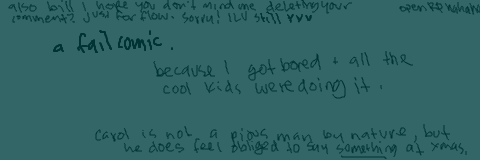 also bill I hope you don't mind me deleting your
comment? just for flow. sorry! ILU still vvv
open RP
a fail comic.
because I got bored & all the
cool kids were doing it.
carol is not a pious man by nature, but
he does feel obliged to say something at xmas.